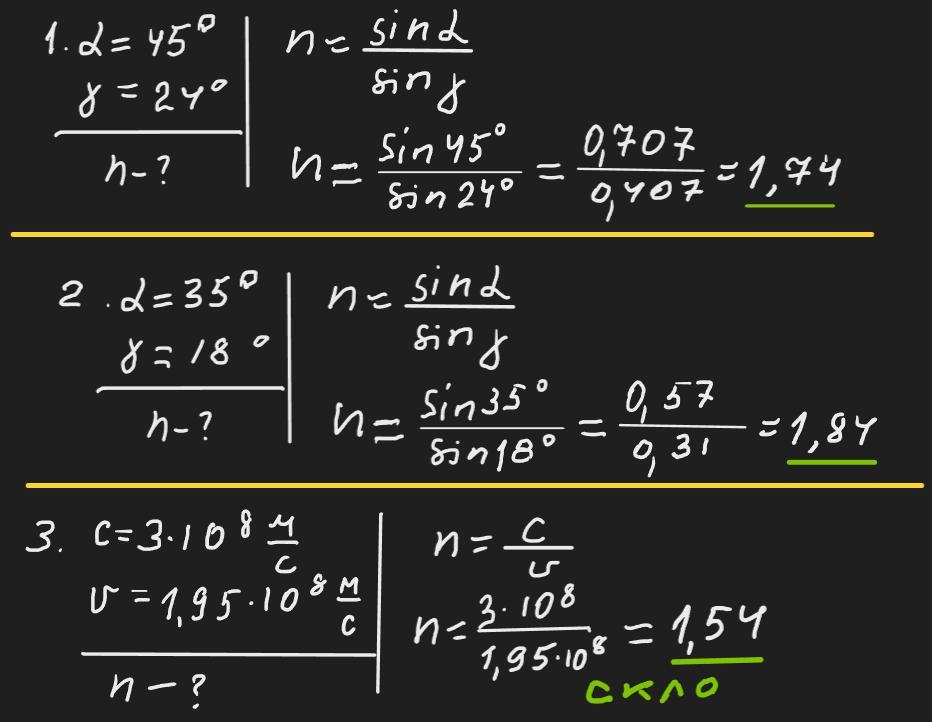 1. α = 45°
γ = 24°
n - ?
n = sin α / sin γ
n = sin 45° / sin 24° = 0,707 / 0,407 = 1,74
2. α = 35°
γ = 18°
n - ?
n = sin α / sin γ
n = sin 35° / sin 18° = 0,57 / 0,31 = 1,84
3. c = 3·10⁸ м/с
υ = 1,95·10⁸ м/с
n - ?
n = c / υ
n = 3·10⁸ / 1,95·10⁸ = 1,54
скло